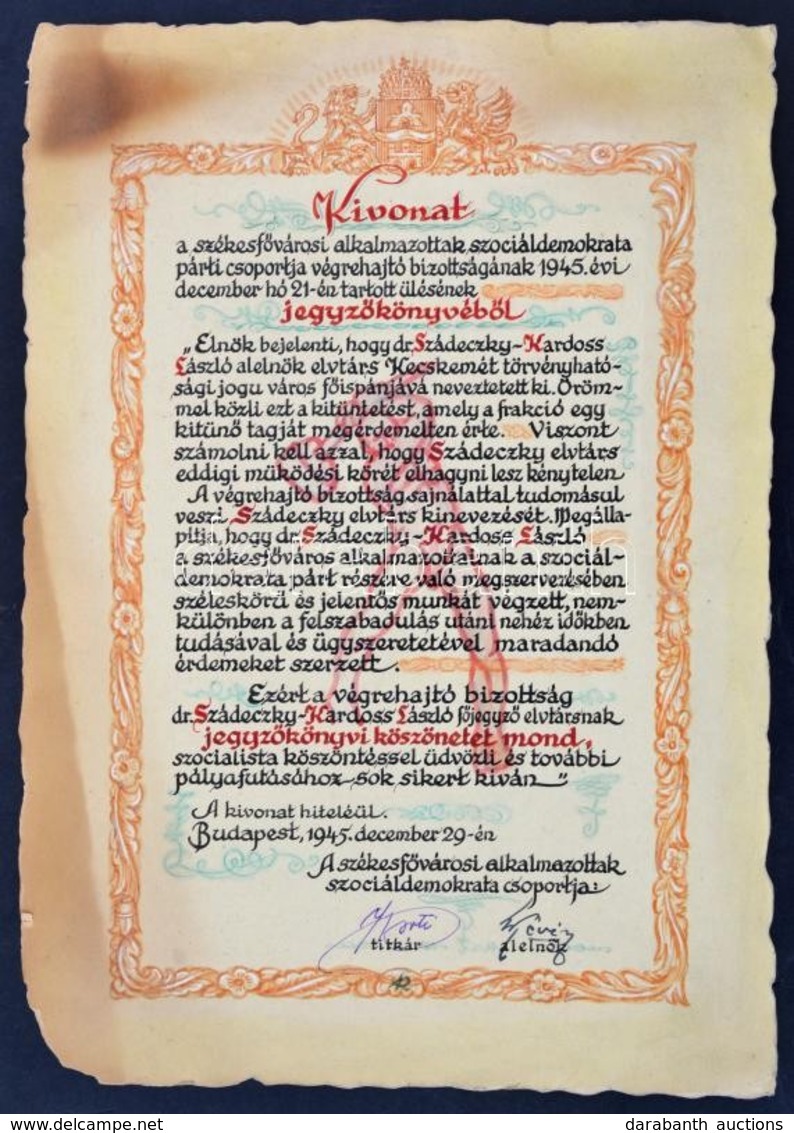 Kivonat
a székesfővárosi alkalmazottak szociáldemokrata
párti csoportja végrehajtó bizottságának 1945. évi
december hó 21-én tartott ülésének
jegyzőkönyvéből
„Elnök bejelenti, hogy dr. Szádeczky-Kardoss
László alelnök elvtárs Kecskemét törvényható-
sági jogu város főispánjává neveztetett ki. Öröm-
mel közli ezt a kitüntetést, amely a frakció egy
kitünő tagját megérdemelten érte. Viszont
számolni kell azzal, hogy Szádeczky elvtárs
eddigi müködési körét elhagyni lesz kénytelen
A végrehajtó bizottság sajnálattal tudomásul
veszi Szádeczky elvtárs kinevezését. Megálla-
pitja, hogy dr. Szádeczky-Kardoss László
a székesfőváros alkalmazottainak a szociál-
demokrata párt részére való megszervezésében
széleskörü és jelentős munkát végzett, nem-
különben a felszabadulás utáni nehéz időkben
tudásával és ügyszeretetével maradandó
érdemeket szerzett.
Ezért a végrehajtó bizottság
dr. Szádeczky-Kardoss László főjegyző elvtársnak
jegyzőkönyvi köszönetet mond,
szocialista köszöntéssel üdvözli és további
pályafutásához sok sikert kiván"
A kivonat hiteléül.
Budapest, 1945. december 29-én
A székesfővárosi alkalmazottak
szociáldemokrata csoportja:
titkár alelnök
darabanth auctions